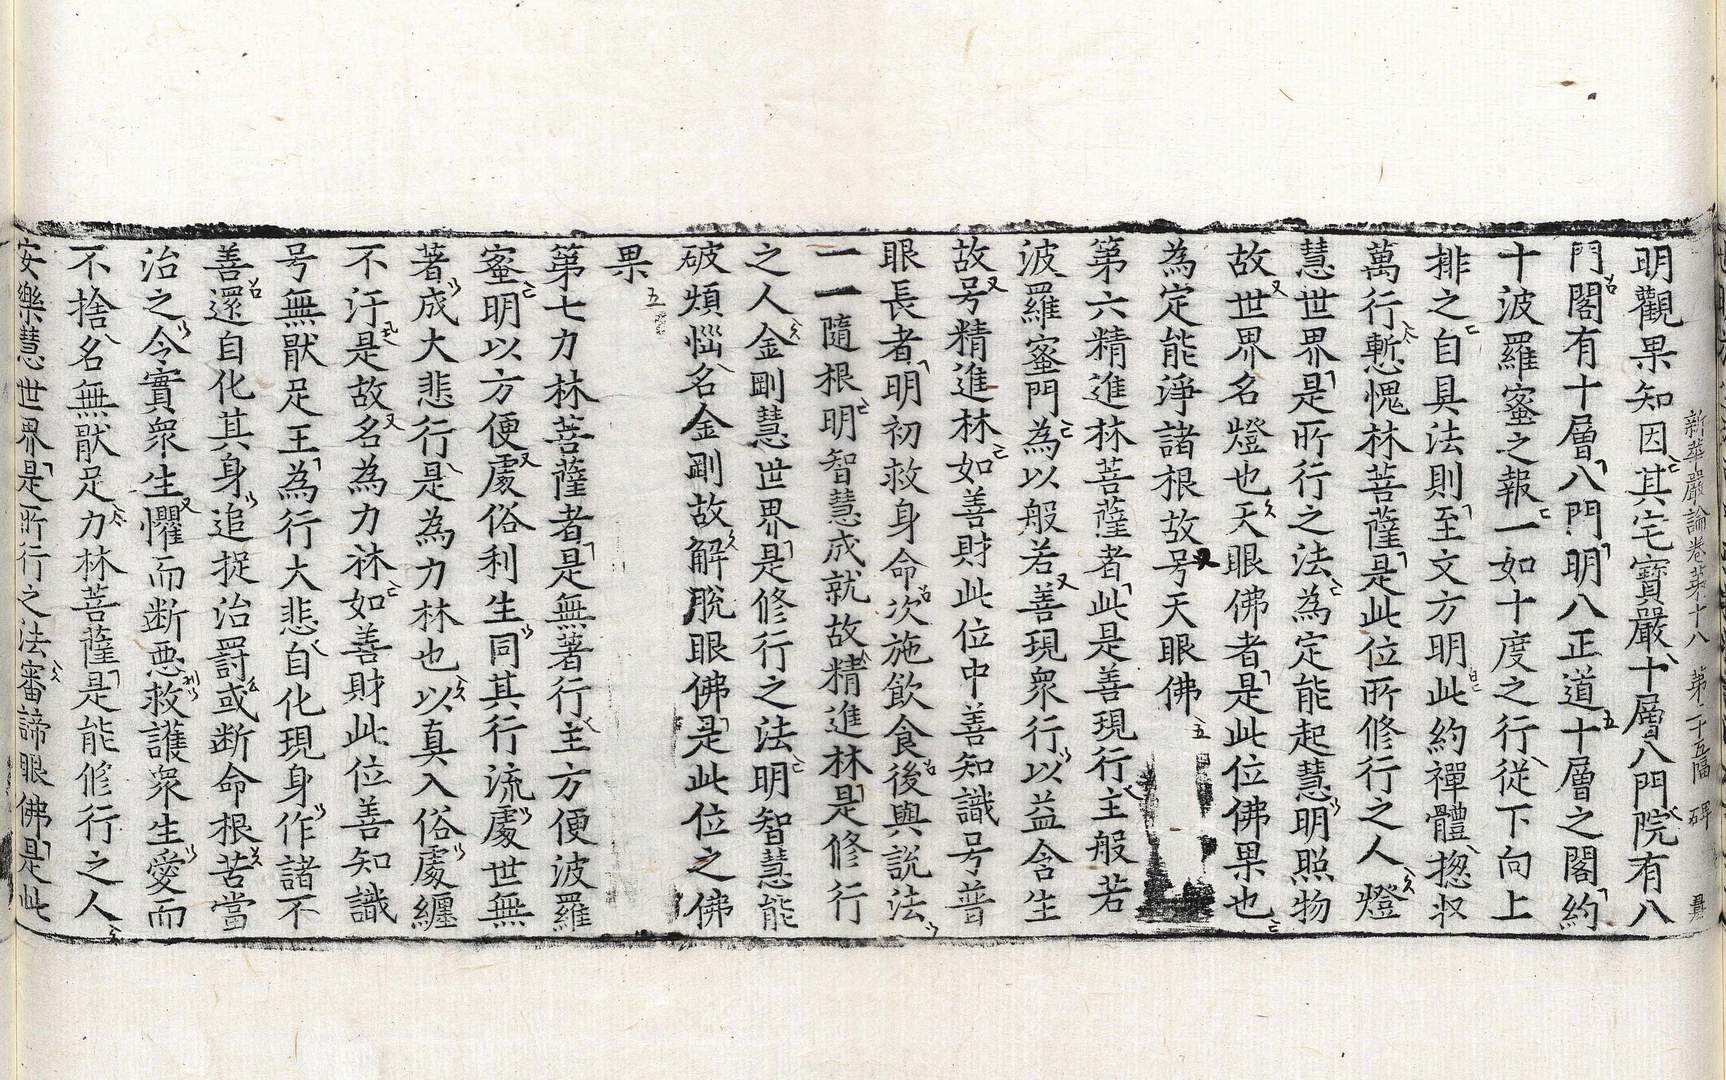 新華嚴論卷第十八 第二十五幅 碑
明觀果知因其宅寶嚴十層八門院有八
門閣有十層八門明八正道十層之閣約
十波羅蜜之報一如十度之行從下向上
排之自具法則至文方明此約禪體揔収
萬行慙愧林菩薩是此位所修行之人燈
慧世界是所行之法為定能起慧明照物
故世界名燈也天眼佛者是此位佛果也
為定能淨諸根故号天眼佛
第六精進林菩薩者此是善現行主般若
波羅蜜門為以般若善現衆行以益含生
故号精進林如善財此位中善知識号普
眼長者明初救身命次施飲食後與說法
一一隨根明智慧成就故精進林是修行
之人金剛慧世界是修行之法明智慧能
破煩惱名金剛故解脫眼佛是此位之佛
果
第七力林菩薩者是無著行主方便波羅
蜜明以方便處俗利生同其行流處世無
著成大悲行是為力林也以真入俗處纏
不汙是故名為力林如善財此位善知識
号無猒足王為行大悲自化現身作諸不
善還自化其身追捉治罸或断命根苦當
治之令實衆生懼而断惡救護衆生愛而
不捨名無猒足力林菩薩是能修行之人
安樂慧世界是所行之法審諦眼佛是此